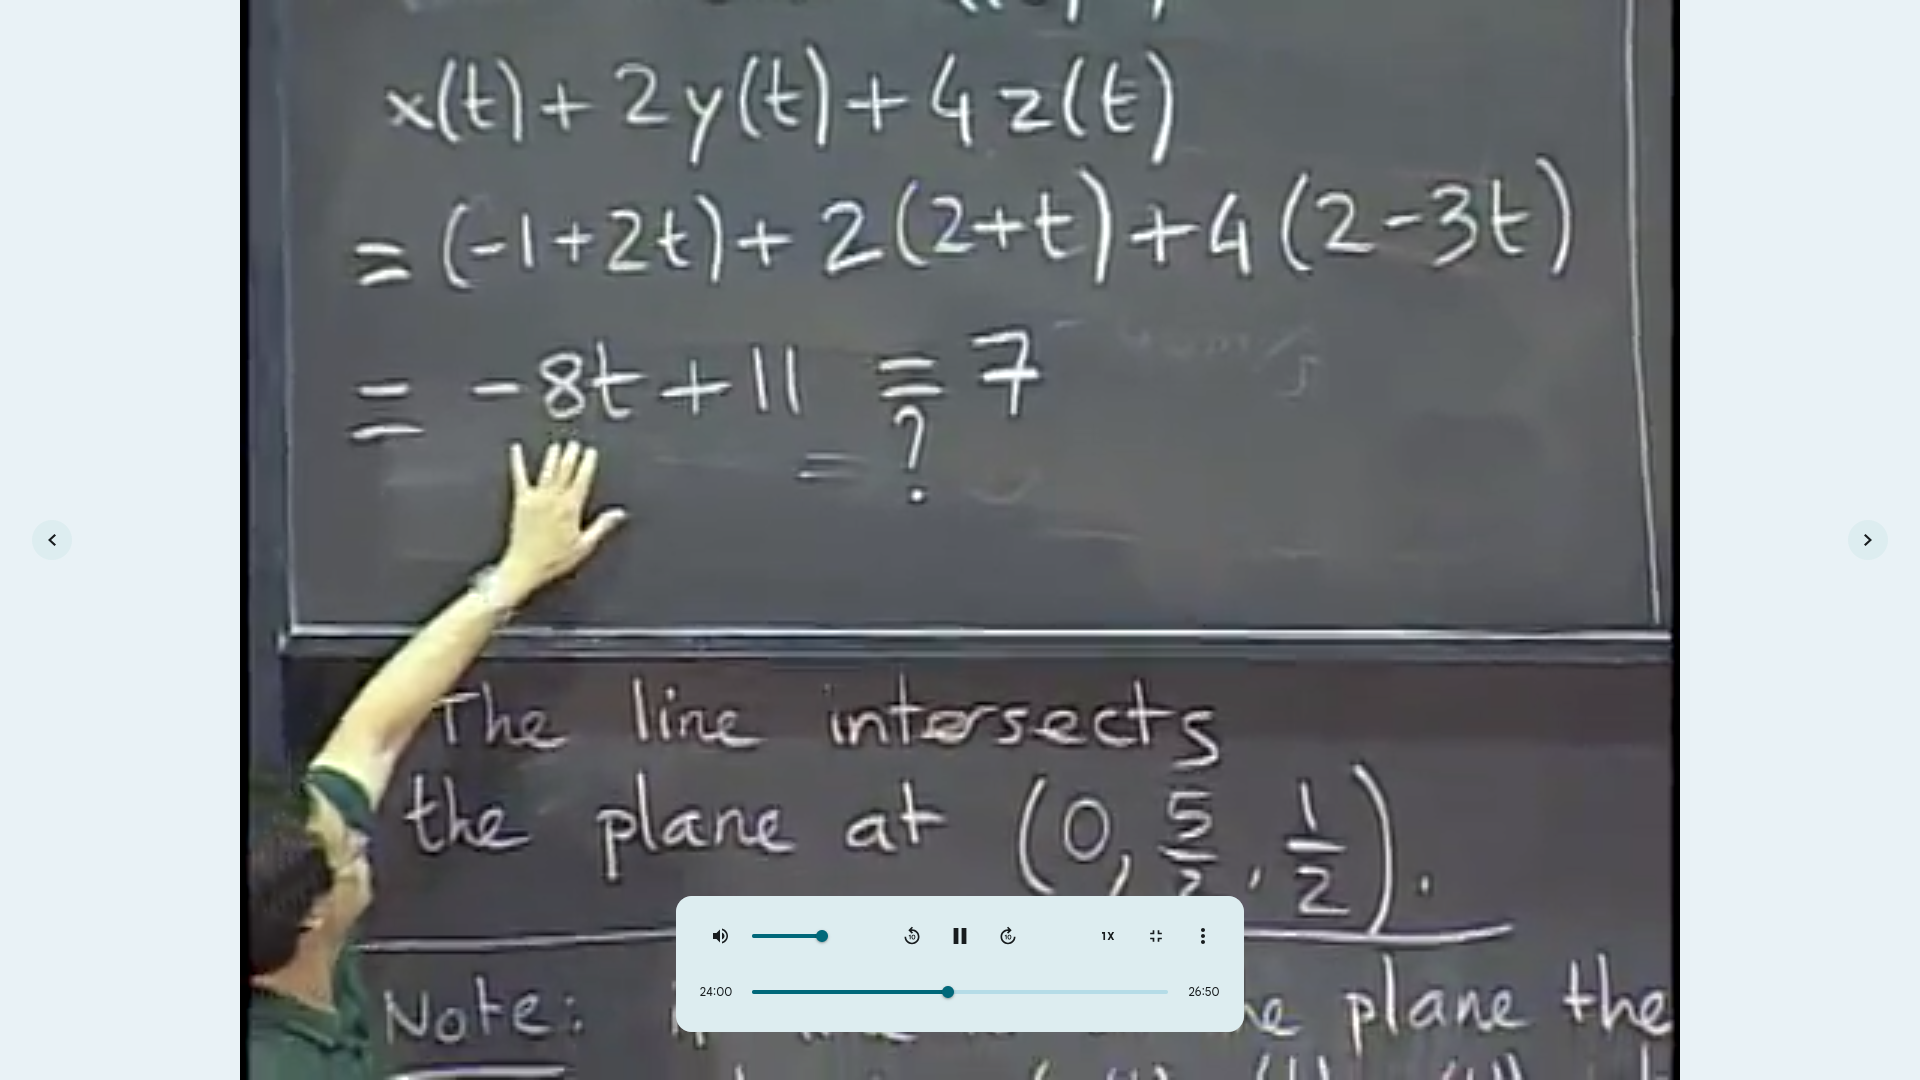 x(t) + 2y(t) + 4z(t)
= (-1+2t) + 2(2+t) + 4(2-3t)
= -8t + 11 = 7
= ?
The line intersects
the plane at (0, 5/2, 1/2).
Note: plane the
10 10 1X
24:00 26:50